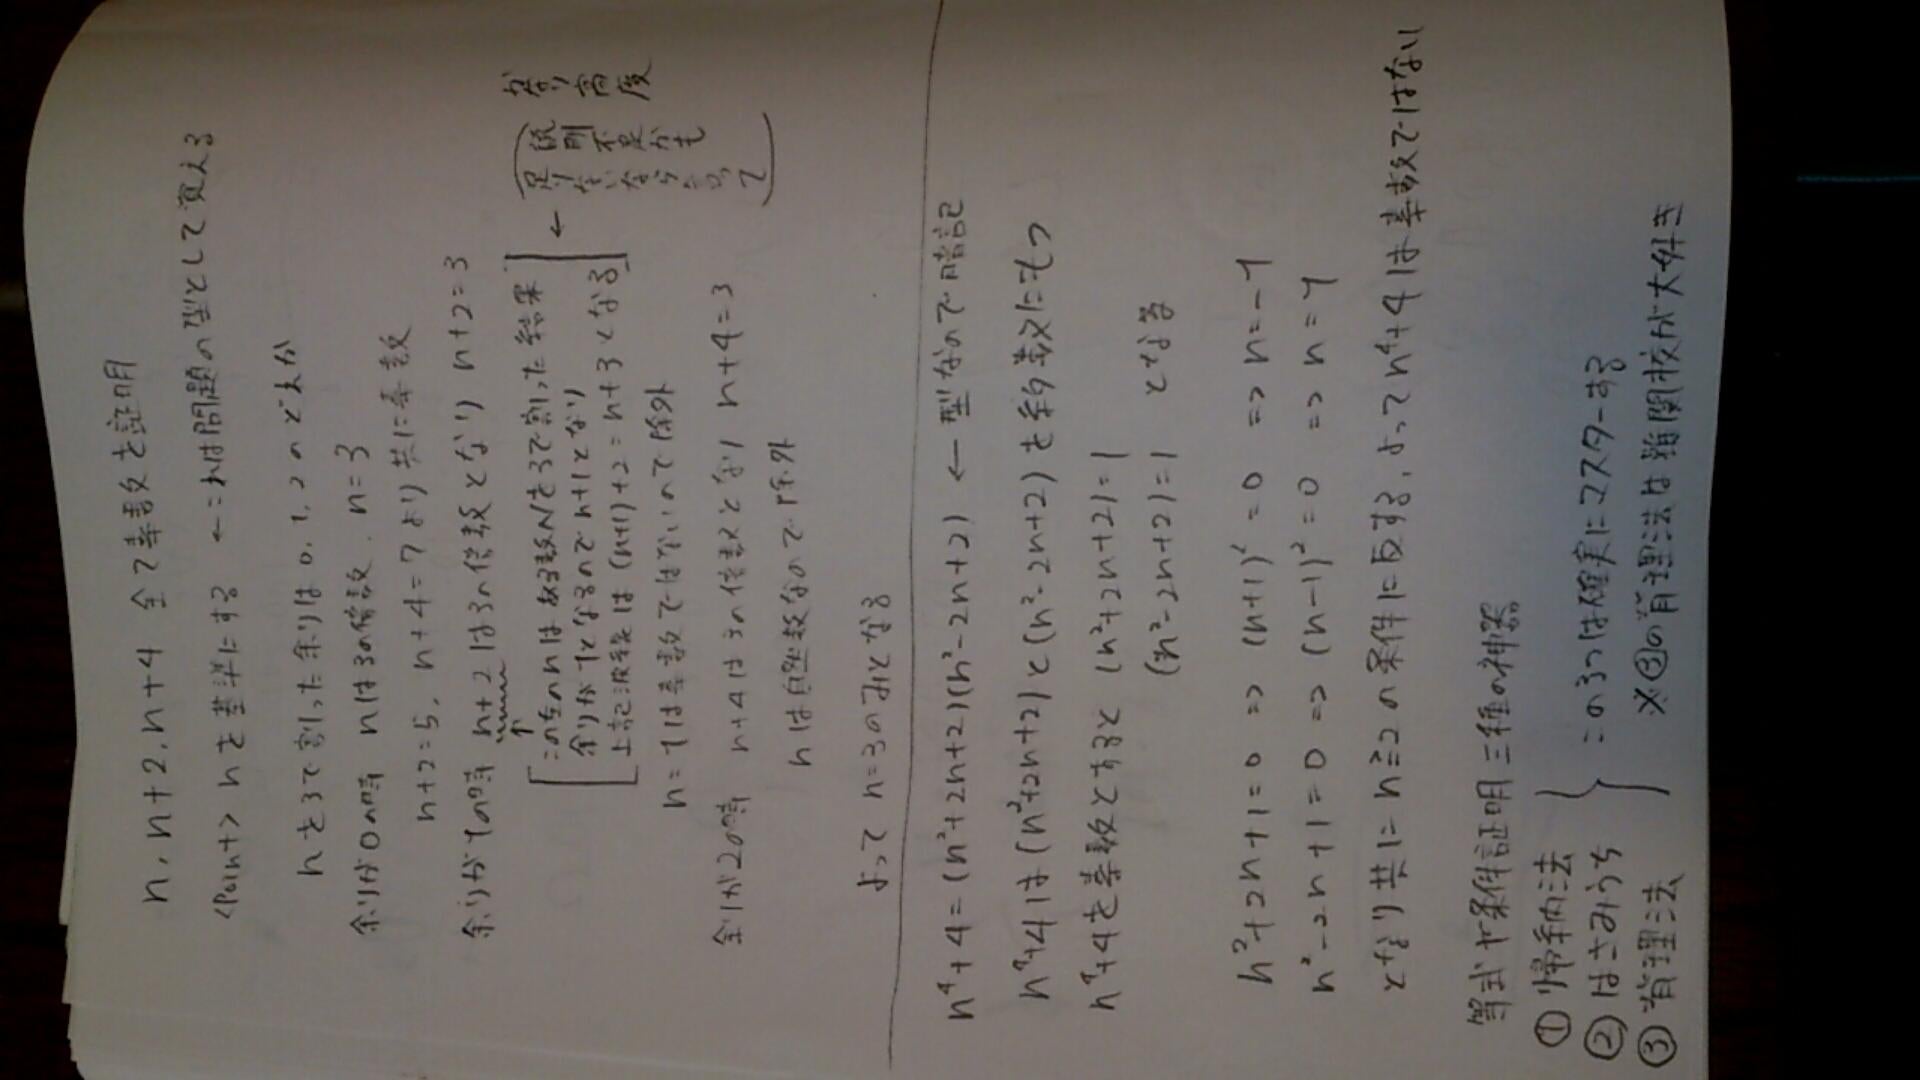 n, n+2, n+4 全て素数を証明
<Point> nを基準にする ←これは問題の型として覚える
nを3で割った余りは0, 1, 2のどれか
余りが0の時 nは3の倍数、n=3
n+2=5, n+4=7より共に素数
余りが1の時 n+2は3の倍数となり n+2=3
この左のnはある数Nを3で割った結果
余りが1となるのでn+1となり
上記波線は(n+1)+2=n+3となる
← (説明不足かも 足りないなら言って)
かなり高度
n=1は素数ではないので除外
余りが2の時 n+4は3の倍数となり n+4=3
nは自然数なので除外
よって n=3のみとなる
n⁴+4=(n²+2n+2)(n²-2n+2) ←型なので暗記
n⁴+4は(n²+2n+2)と(n²-2n+2)を約数にもつ
n⁴+4を素数とすると (n²+2n+2)=1
(n²-2n+2)=1 となる
n²+2n+1=0 => (n+1)²=0 => n=-1
n²-2n+1=0 => (n-1)²=0 => n=1
となり共にn≧2の条件に反する、よってn⁴+4は素数ではない
等式や条件証明 三種の神器
① 帰納法
② はさみうち
③ 背理法
この3つは確実にマスターする
※③の背理法は難関校が大好き